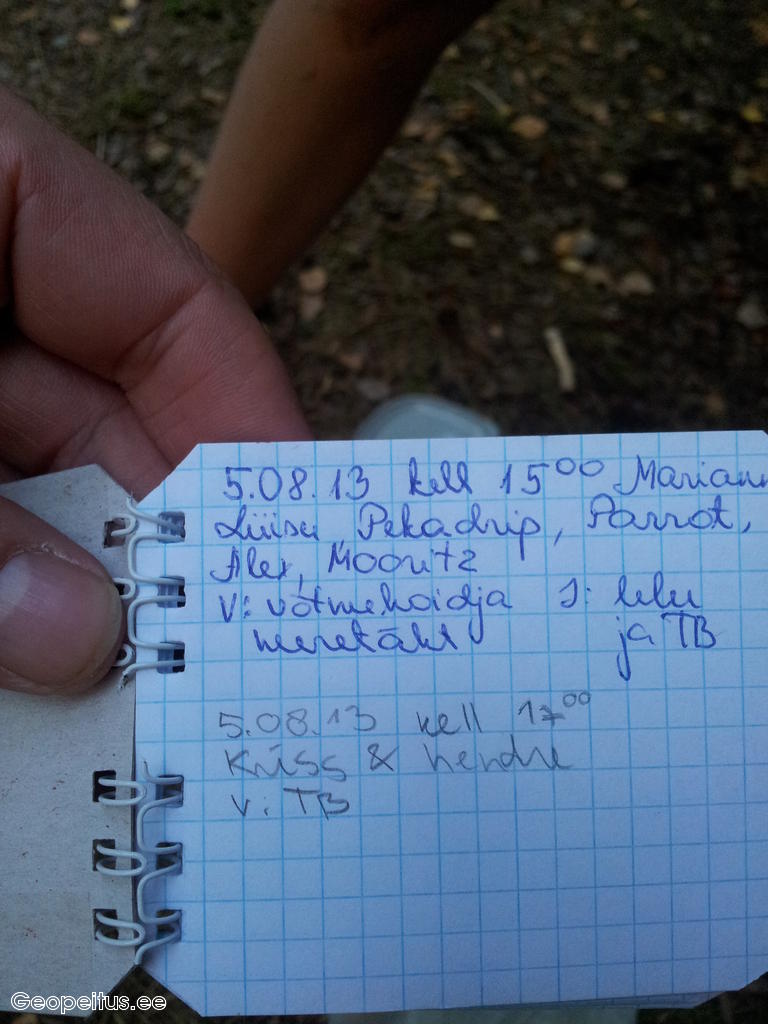 5.08.13 kell 15⁰⁰ Mariann
Liisu, Pekadrip, Parrot,
Alex, Mooritz
V: võtmehoidja J: lelu
meretäht ja TB
5.08.13 kell 17⁰⁰
& Kendre
V: TB
Geopeitus.ee